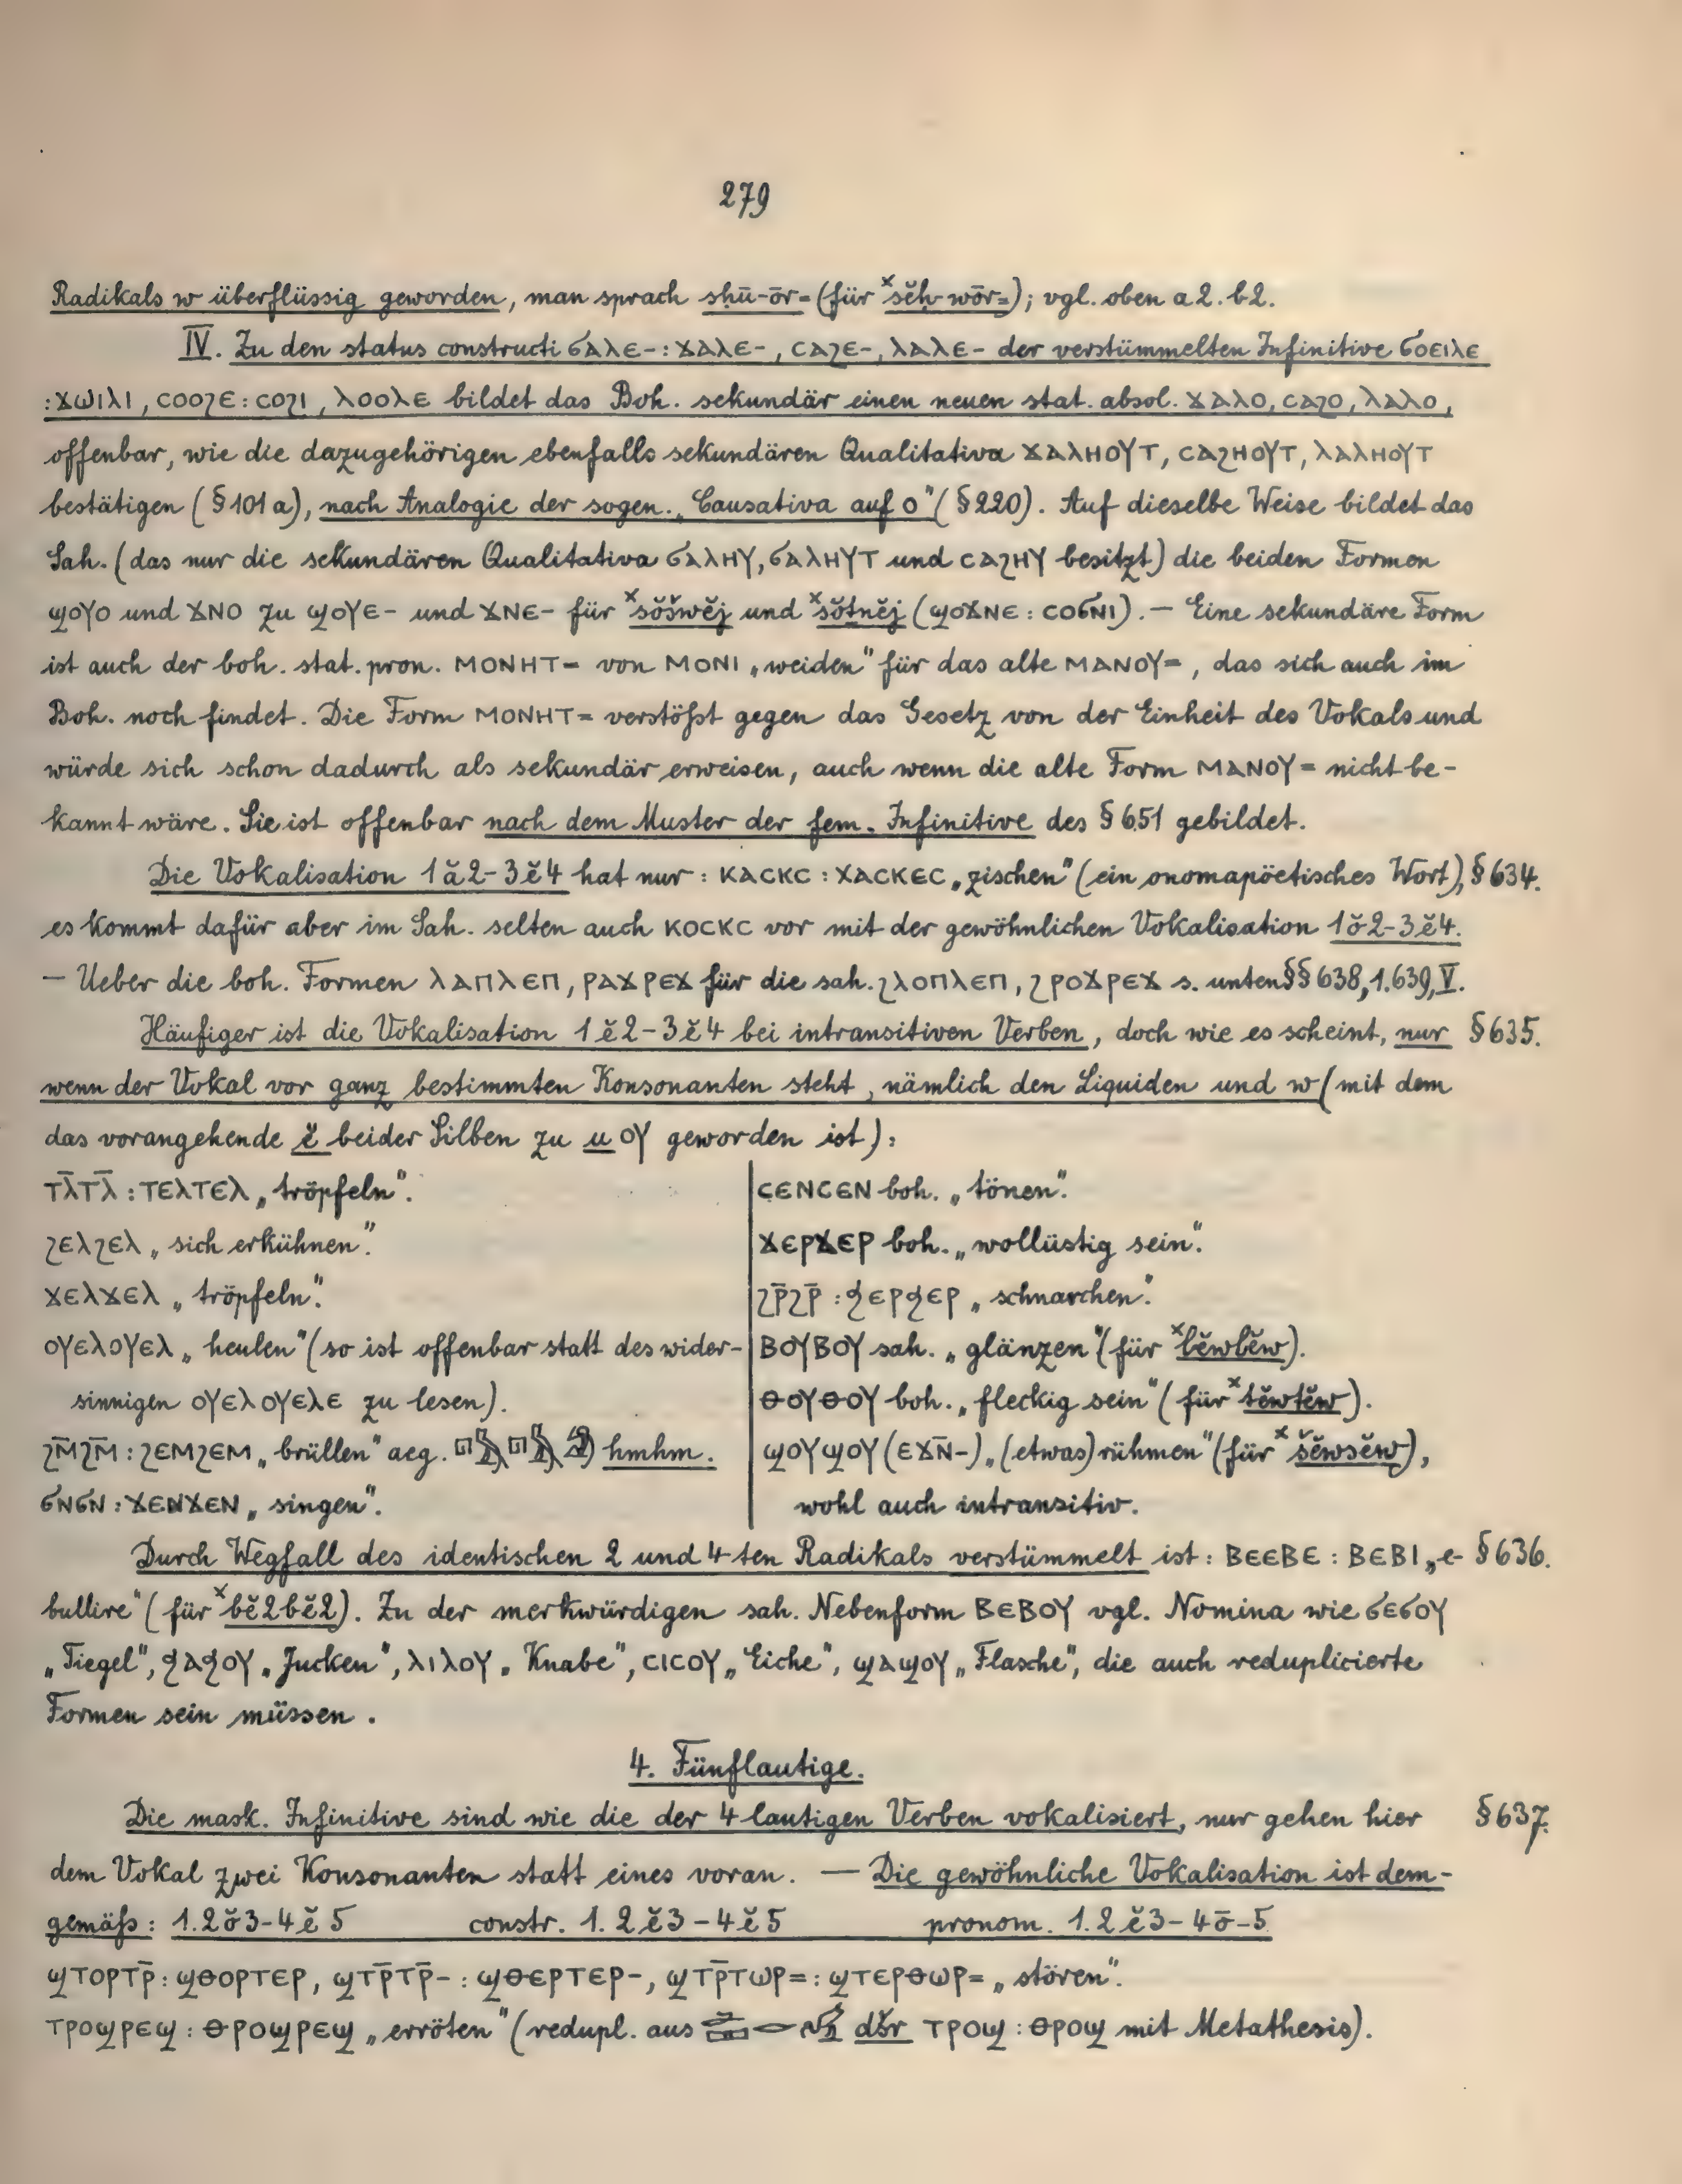 279
Radikals w überflüssig geworden, man sprach sḥū-ōr= (für ˣsĕḥ-wōr=); vgl. oben a 2. b 2.
IV. Zu den status constructi ϭⲁⲗⲉ- : ϫⲁⲗⲉ-, ⲥⲁϩⲉ-, ⲗⲁⲗⲉ- der verstümmelten Infinitive ϭⲟⲉⲓⲗⲉ
: ϫⲱⲓⲗⲓ, ⲥⲟⲟϩⲉ : ⲥⲟϩⲓ, ⲗⲟⲟⲗⲉ bildet das Boh. sekundär einen neuen stat. absol. ϫⲁⲗⲟ, ⲥⲁϩⲟ, ⲗⲁⲗⲟ,
offenbar, wie die dazugehörigen ebenfalls sekundären Qualitativa ϫⲁⲗⲏⲟⲩⲧ, ⲥⲁϩⲏⲟⲩⲧ, ⲗⲁⲗⲏⲟⲩⲧ
bestätigen (§ 101 a), nach Analogie der sogen. „Causativa auf o" (§ 220). Auf dieselbe Weise bildet das
Sah. (das nur die sekundären Qualitativa ϭⲁⲗⲏⲩ, ϭⲁⲗⲏⲩⲧ und ⲥⲁϩⲏⲩ besitzt) die beiden Formen
ϣⲟⲩⲟ und ϫⲛⲟ zu ϣⲟⲩⲉ- und ϫⲛⲉ- für ˣšŏšwĕj und ˣšŏtnĕj (ϣⲟϫⲛⲉ : ⲥⲟϭⲛⲓ). — Eine sekundäre Form
ist auch der boh. stat. pron. ⲙⲟⲛⲏⲧ= von ⲙⲟⲛⲓ „weiden" für das alte ⲙⲁⲛⲟⲩ=, das sich auch im
Boh. noch findet. Die Form ⲙⲟⲛⲏⲧ= verstößt gegen das Gesetz von der Einheit des Vokals und
würde sich schon dadurch als sekundär erweisen, auch wenn die alte Form ⲙⲁⲛⲟⲩ= nicht be-
kannt wäre. Sie ist offenbar nach dem Muster der fem. Infinitive des § 651 gebildet.
Die Vokalisation 1ă2-3ĕ4 hat nur : ⲕⲁⲥⲕⲥ : ⲭⲁⲥⲕⲉⲥ „zischen" (ein onomapöetisches Wort), § 634.
es kommt dafür aber im Sah. selten auch ⲕⲟⲥⲕⲥ vor mit der gewöhnlichen Vokalisation 1ŏ2-3ĕ4.
— Ueber die boh. Formen ⲗⲁⲡⲗⲉⲡ, ⲣⲁϫⲣⲉϫ für die sah. ϩⲗⲟⲡⲗⲉⲡ, ϩⲣⲟϫⲣⲉϫ s. unten §§ 638, 1. 639, V.
Häufiger ist die Vokalisation 1ĕ2-3ĕ4 bei intransitiven Verben, doch wie es scheint, nur § 635.
wenn der Vokal vor ganz bestimmten Konsonanten steht, nämlich den Liquiden und w (mit dem
das vorangehende ĕ beider Silben zu u ⲟⲩ geworden ist):
ⲧⲗ̄ⲧⲗ̄ : ⲧⲉⲗⲧⲉⲗ „tröpfeln".
ϩⲉⲗϩⲉⲗ „sich erkühnen".
ϫⲉⲗϫⲉⲗ „tröpfeln".
ⲟⲩⲉⲗⲟⲩⲉⲗ „heulen" (so ist offenbar statt des wider-
sinnigen ⲟⲩⲉⲗⲟⲩⲉⲗⲉ zu lesen).
ϩⲙ̄ϩⲙ̄ : ϩⲉⲙϩⲉⲙ „brüllen" aeg. hmhm.
ϭⲛϭⲛ : ϫⲉⲛϫⲉⲛ „singen".
ⲥⲉⲛⲥⲉⲛ boh. „tönen".
ϫⲉⲣϫⲉⲣ boh. „wollüstig sein".
ϩⲣ̄ϩⲣ̄ : ϧⲉⲣϧⲉⲣ „schnarchen".
ⲃⲟⲩⲃⲟⲩ sah. „glänzen" (für ˣbĕwbĕw).
ⲑⲟⲩⲑⲟⲩ boh. „fleckig sein" (für ˣtĕwtĕw).
ϣⲟⲩϣⲟⲩ (ⲉϫⲛ̄-) „(etwas) rühmen" (für ˣšĕwšĕw),
wohl auch intransitiv.
Durch Wegfall des identischen 2 und 4-ten Radikals verstümmelt ist : ⲃⲉⲉⲃⲉ : ⲃⲉⲃⲓ „e- § 636.
bullire" (für ˣbĕ2bĕ2). Zu der merkwürdigen sah. Nebenform ⲃⲉⲃⲟⲩ vgl. Nomina wie ϭⲉϭⲟⲩ
„Tiegel", ϧⲁϧⲟⲩ „Jucken", ⲗⲓⲗⲟⲩ „Knabe", ⲥⲓⲥⲟⲩ „Eiche", ϣⲁϣⲟⲩ „Flasche", die auch reduplicierte
Formen sein müssen.
4. Fünflautige.
Die mask. Infinitive sind wie die der 4 lautigen Verben vokalisiert, nur gehen hier § 637.
dem Vokal zwei Konsonanten statt eines voran. — Die gewöhnliche Vokalisation ist dem-
gemäß : 1.2ŏ3-4ĕ5 constr. 1.2ĕ3-4ĕ5 pronom. 1.2ĕ3-4ō-5
ϣⲧⲟⲣⲧⲣ̄ : ϣⲑⲟⲣⲧⲉⲣ, ϣⲧⲣ̄ⲧⲣ̄- : ϣⲑⲉⲣⲧⲉⲣ-, ϣⲧⲣ̄ⲧⲱⲣ= : ϣⲧⲉⲣⲑⲱⲣ= „stören".
ⲧⲣⲟϣⲣⲉϣ : ⲑⲣⲟϣⲣⲉϣ „erröten" (redupl. aus dšr ⲧⲣⲟϣ : ⲑⲣⲟϣ mit Metathesis).